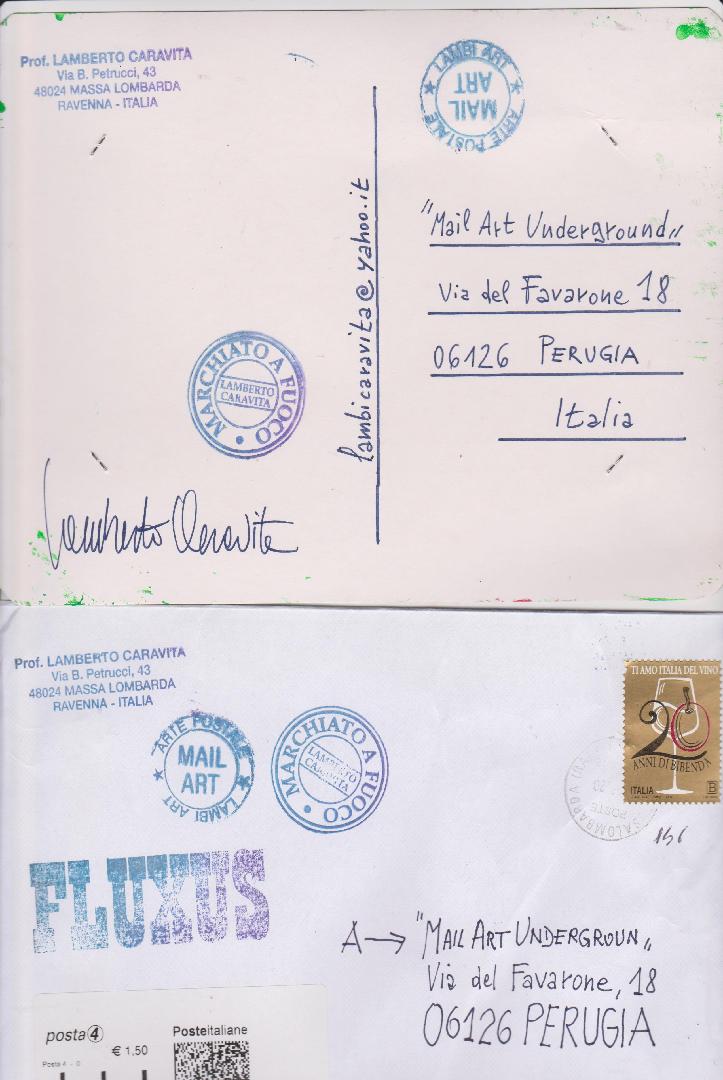 Prof. LAMBERTO CARAVITA
Via B. Petrucci, 43
48024 MASSA LOMBARDA
RAVENNA - ITALIA
LAMBI ART
MAIL
ART
ARTE POSTALE
"Mail Art Underground"
Via del Favarone 18
06126 PERUGIA
Italia
lambicaravita@yahoo.it
MARCHIATO A FUOCO
LAMBERTO
CARAVITA
Lamberto Caravita
Prof. LAMBERTO CARAVITA
Via B. Petrucci, 43
48024 MASSA LOMBARDA
RAVENNA - ITALIA
ARTE POSTALE
MAIL
ART
LAMBI ART
MARCHIATO A FUOCO
LAMBERTO
CARAVITA
TI AMO ITALIA DEL VINO
20
ANNI DI BIBENDA
ITALIA
B
156
FLUXUS
A → "MAIL ART UNDERGROUN"
Via del Favarone, 18
06126 PERUGIA
posta4
€ 1,50
Posteitaliane
Posta 4 - 0